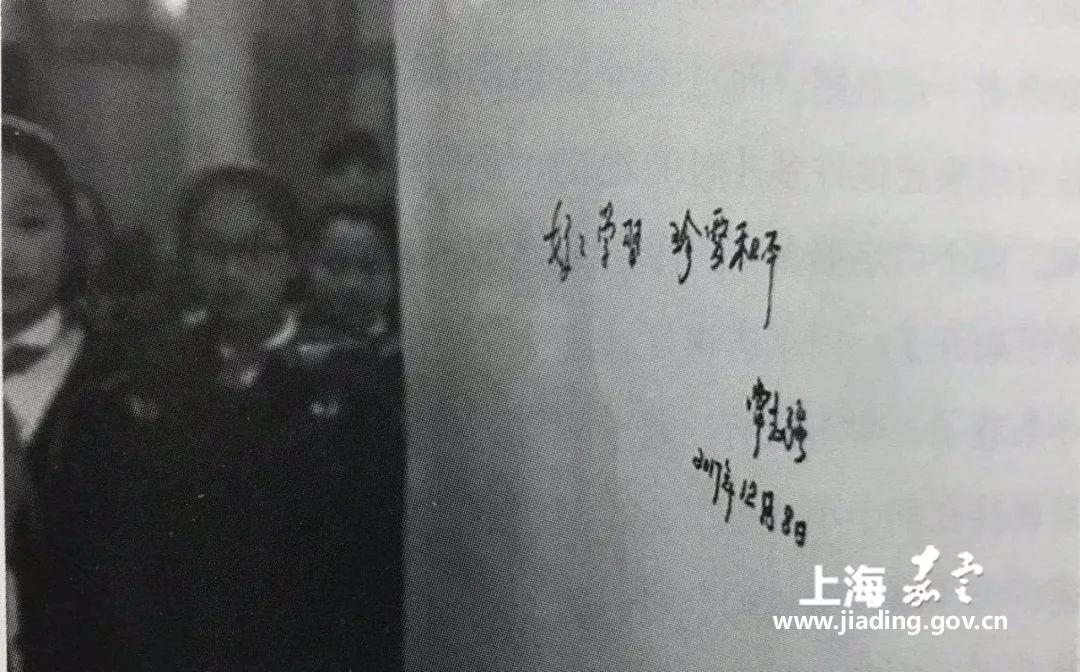 好好学习 珍爱和平
常志强
2017年12月8日
上海嘉定
www.jiading.gov.cn